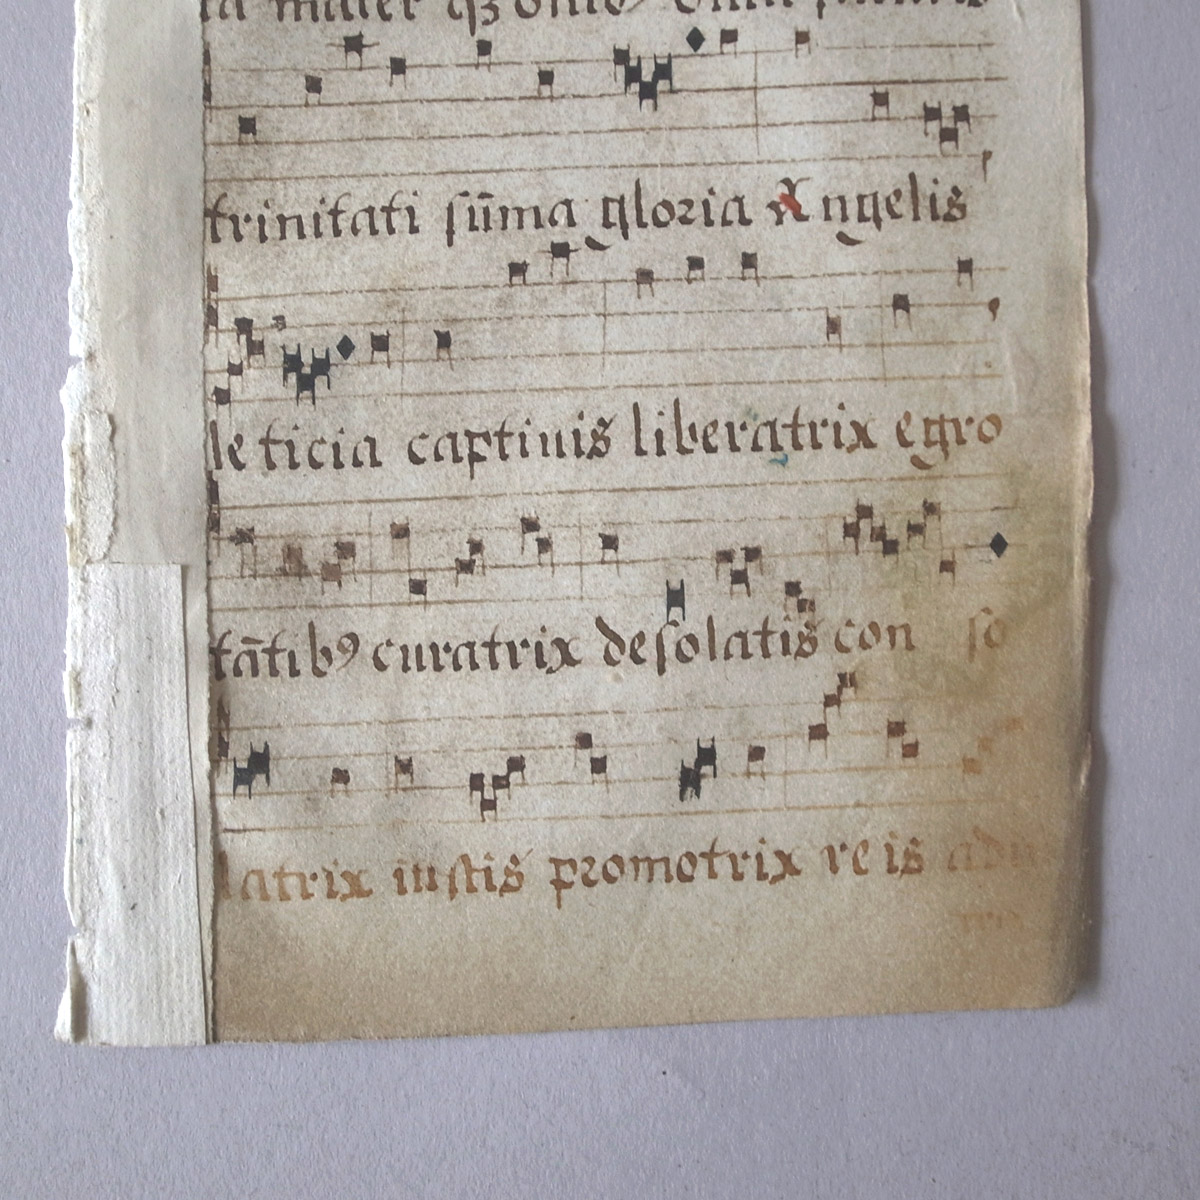 mater
trinitati sūma gloria Angelis
leticia captiuis liberatrix egro
tātibꝰ curatrix desolatis con so
latrix iustis promotrix reis